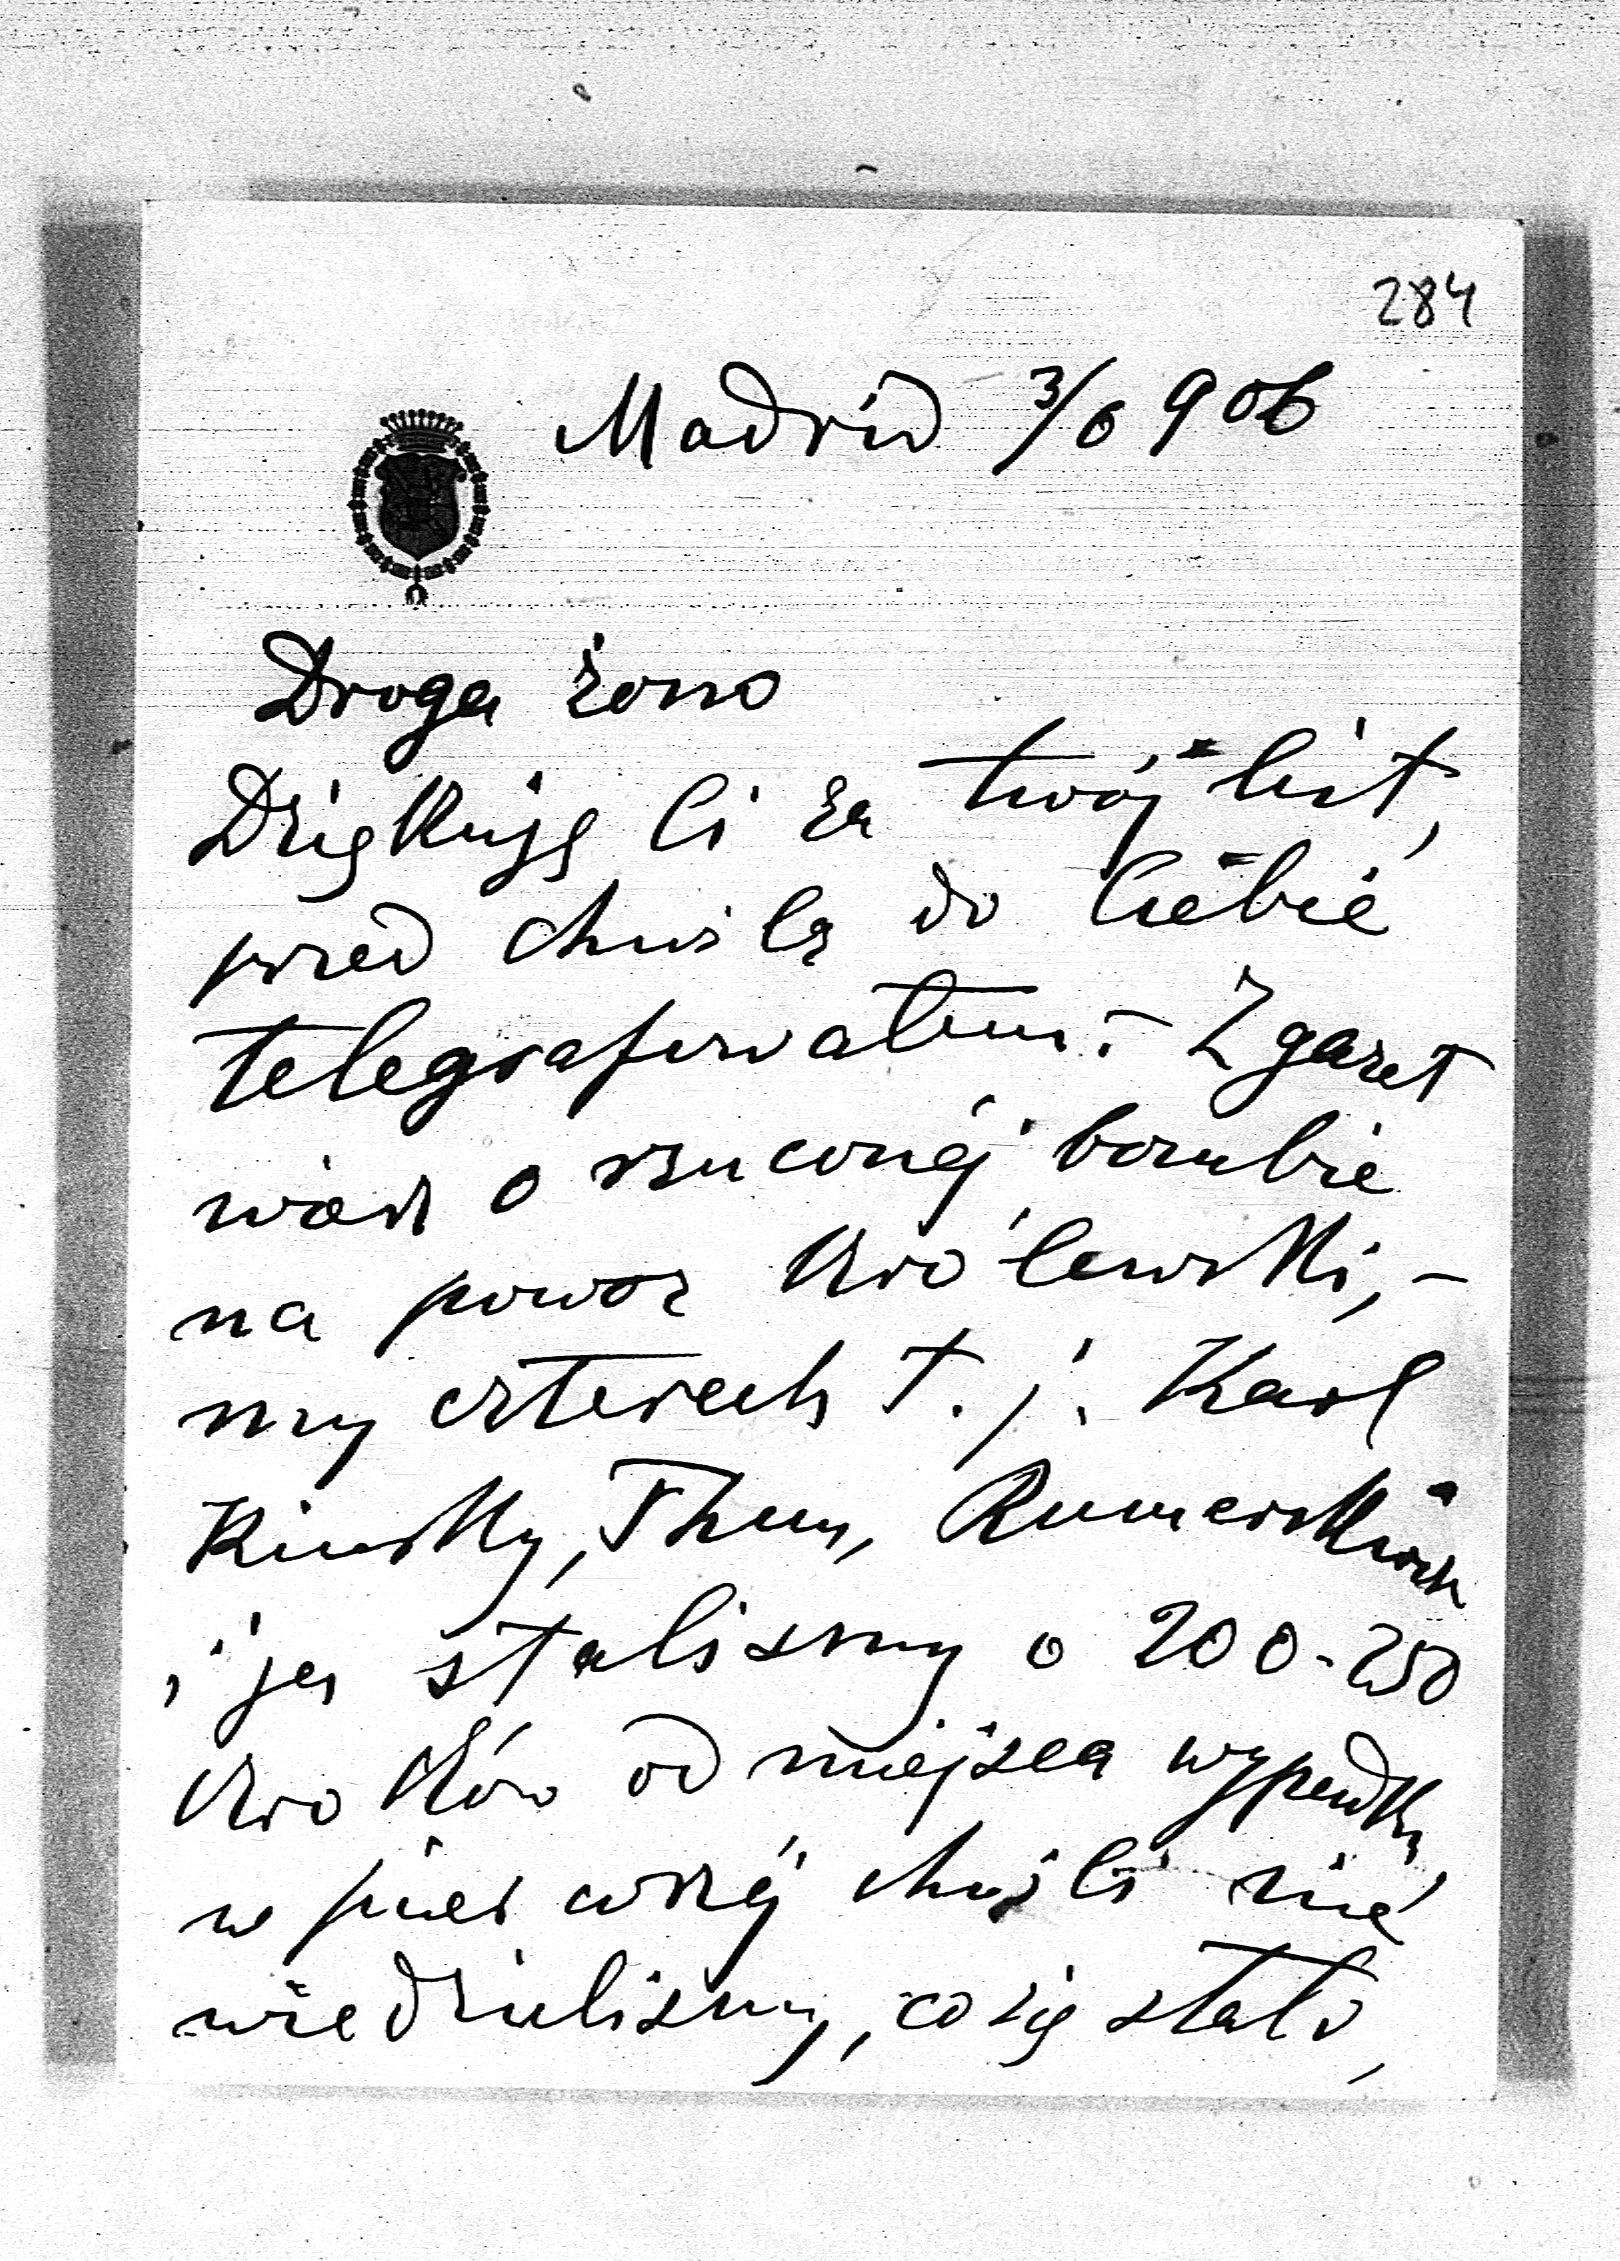 284
Madrid 3/6 906
Droga żono
Dziękuję Ci za twój list,
przed chwilą do Ciebie
telegrafowałem. – Z gazet
wiesz o rzuconéj bombie
na powoz królewski, –
my czterech t. j. Karl
Kinsky, Thun, Rumerskirch
i ja staliśmy o 200-250
kroków od miejsca wypadku,
w pierwszéj chwili nie
wiedzieliśmy, co się stało,